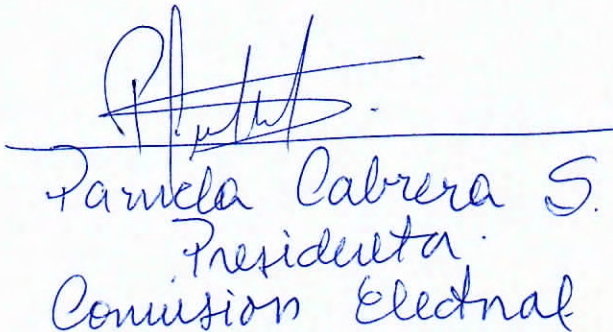 Pamela Cabrera S.
Presidenta.
Comision Electoral